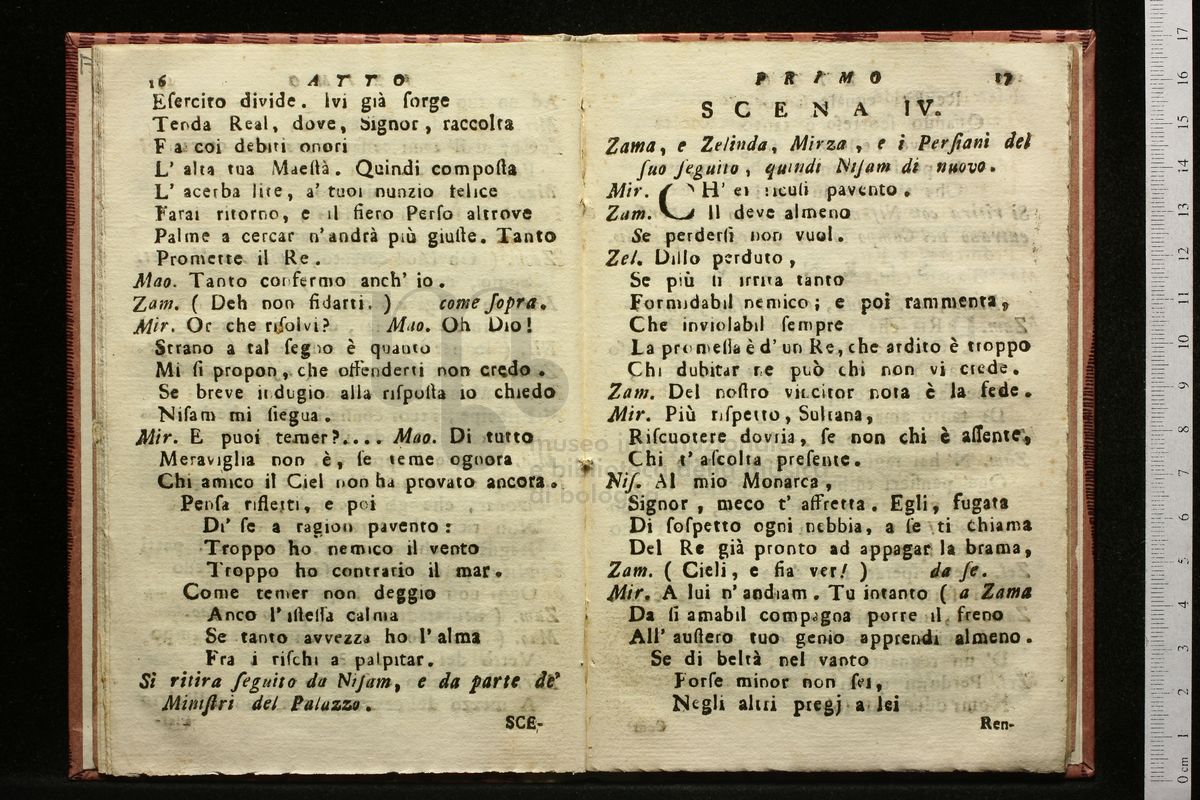 16 ATTO
Esercito divide. Ivi già sorge
Tenda Real, dove, Signor, raccolta
Fa coi debiti onori
L' alta tua Maestà. Quindi composta
L' acerba lite, a' tuoi nunzio felice
Farai ritorno, e il fiero Perso altrove
Palme a cercar n'andrà più giuste. Tanto
Promette il Re.
Mao. Tanto confermo anch' io.
Zam. ( Deh non fidarti. ) come sopra.
Mir. Or che risolvi? Mao. Oh Dio!
Strano a tal segno è quanto
Mi si propon, che offenderti non credo.
Se breve indugio alla risposta io chiedo
Nisam mi siegua.
Mir. E puoi temer?.... Mao. Di tutto
Meraviglia non è, se teme ognora
Chi amico il Ciel non ha provato ancora.
Pensa rifletti, e poi
Di' se a ragion pavento:
Troppo ho nemico il vento
Troppo ho contrario il mar.
Come temer non deggio
Anco l'istessa calma
Se tanto avvezza ho l'alma
Fra i rischi a palpitar.
Si ritira seguito da Nisam, e da parte de'
Ministri del Palazzo.
SCE-
PRIMO 17
SCENA IV.
Zama, e Zelinda, Mirza, e i Persiani del
suo seguito, quindi Nisam di nuovo.
Mir. CH' ei ricusi pavento.
Zam. Il deve almeno
Se perdersi non vuol.
Zel. Dillo perduto,
Se più si irrita tanto
Formidabil nemico; e poi rammenta,
Che inviolabil sempre
La promessa è d'un Re, che ardito è troppo
Chi dubitar ne può chi non vi crede.
Zam. Del nostro vincitor nota è la fede.
Mir. Più rispetto, Sultana,
Riscuotere dovria, se non chi è assente,
Chi t'ascolta presente.
Nis. Al mio Monarca,
Signor, meco t' affretta. Egli, fugata
Di sospetto ogni nebbia, a se ti chiama
Del Re già pronto ad appagar la brama,
Zam. ( Cieli, e fia ver! ) da se.
Mir. A lui n'andiam. Tu intanto ( a Zama
Da sì amabil compagna porre il freno
All' austero tuo genio apprendi almeno.
Se di beltà nel vanto
Forse minor non sei,
Negli altri pregj a lei
Ren-
museo
e biblio
di bolo
0 cm 1 2 3 4 5 6 7 8 9 10 11 12 13 14 15 16 17